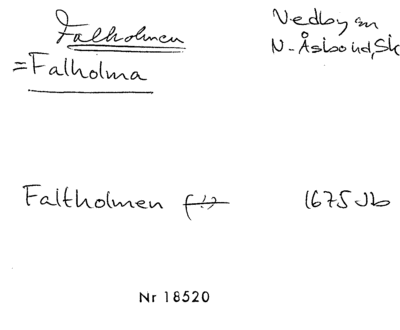 Falholmen
Vedby sn
N. Åsbo hd, Sk
= Falholma
Faltholmen (!) 1675 Jb
Nr 18520